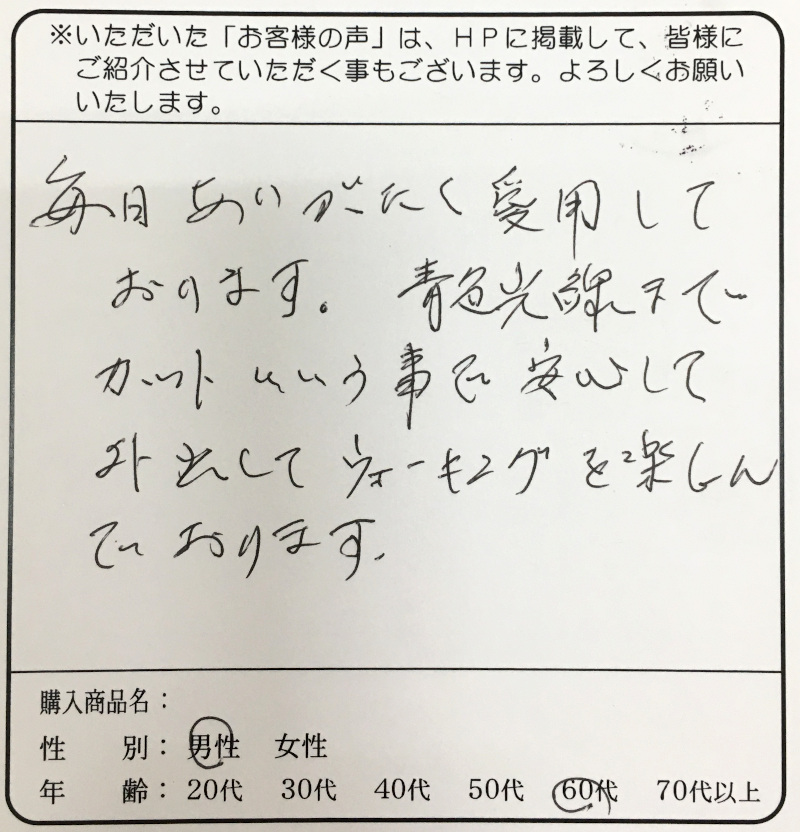 ※いただいた「お客様の声」は、ＨＰに掲載して、皆様に
ご紹介させていただく事もございます。よろしくお願い
いたします。
毎日ありがたく愛用して
おります。青色光線まで
カットという事で安心して
外出してウォーキングを楽しん
でおります。
購入商品名：
性　別：男性　女性
年　齢：20代　30代　40代　50代　60代　70代以上